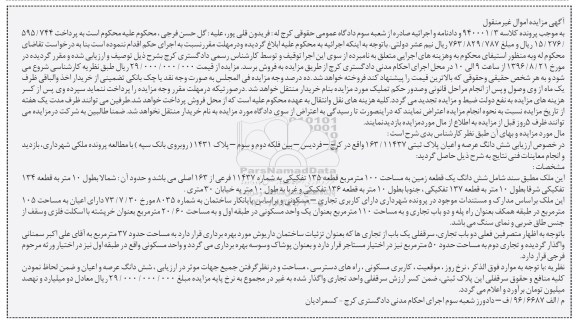 آگهی مزایده اموال غیرمنقول
به موجب پرونده کلاسه ۹۴۰۰۰۱/۳ و دادنامه و اجرائیه صادره از شعبه سوم دادگاه عمومی حقوقی کرج له : فریدون قلی پور، علیه : گل حسن فرجی ، محکوم علیه محکوم است به پرداخت ۵۹۵/۷۴۴
/۱۵/۲۷۶ ریال و مبلغ ۷۶۳/۸۲۹/۷۸۷ ریال نیم عشر دولتی . باتوجه به اینکه اجرائیه به محکوم علیه ابلاغ گردیده ودرمهلت مقرر نسبت به اجرای حکم اقدام ننموده است بنا به درخواست تقاضای
محکوم له وبه منظور استیفای محکوم به وهزینه های اجرایی متعلق به نامبرده از سوی این اجرا توقیف و توسط کارشناس رسمی دادگستری کرج بشرح ذیل توصیف و ارزیابی شده و مقرر گردیده در
مورخ ۱۳۹۶/۸/۲۱ از ساعت ۹ الی ۱۰ در محل اجرای احکام مدنی دادگستری کرج از طریق مزایده به فروش برسد. مزایده از قیمت ۲۹/۰۰۰/۰۰۰/۰۰۰ ریال طبق نظریه کارشناسی شروع می
شود و به هر شخص حقیقی وحقوقی که بالاترین قیمت را پیشنهاد کند فروخته خواهد شد. ده درصد وجه مزایده فی المجلس به صورت وجه نقد یا چک بانکی تضمینی از خریدار اخذ والباقی ظرف
یک ماه از وی وصول و پس از انجام مراحل قانونی وصدور حکم تملیک مورد مزایده بنام خریدار منتقل خواهد شد. درصورتیکه درمهلت مقرر وجه مزایده را پرداخت ننماید سپرده وی پس از کسر
هزینه های مزایده به نفع دولت ضبط و مزایده تجدید می گردد. کلیه هزینه های نقل وانتقال به عهده محکوم علیه است که از محل فروش پرداخت خواهد شد. طرفین می توانند ظرف مدت یک هفته
از تاریخ مزایده نسبت به نحوه انجام مزایده اعتراض نمایند که دراینصورت تا رسیدگی به اعتراض از سوی دادگاه مورد مزایده به نام خریدار منتقل نخواهد شد. ضمنا طالبین به شرکت درمزایده می
توانند ظرف ۵روز قبل از مزایده به اطلاع از مال موردمزایده بازدیدنمایند.
مال مورد مزایده و بهای آن طبق نظر کارشناس بدی شرح است:
در خصوص ارزیابی شش دانگ عرصه و اعیان پلاک ثبتی ۱۶۳/۱۱۴۳۷ واقع در کرج – فردیس – بین فلکه دوم و سوم – پلاک ۱۴۳۱ ( روبروی بانک سپه ) بامطالعه پرونده ملکی شهرداری، بازدید
و انجام معاینات فنی نتایج به شرح ذیل حاصل گردید:
مشخصات:
این ملک مطبق سند شامل شش دانگ یک قطعه زمین به مساحت ۱۰۰ مترمربع قطعه ۱۳۵ تفکیکی به شماره ۱۱۴۳۷ فرعی از ۱۶۳ اصلی می باشد و حدود آن : شمالا بطول ۱۰ متر به قطعه ۱۳۴
تفکیکی شرقا بطول ۱۰ متر به قطعه ۱۳۷ تفکیکی ، جنوبا بطول ۱۰ متر به قطعه ۱۳۶ تفکیکی و غربا به طول ۱۰ متر به خیابان ۳۰متری.
این ملک براساس مدارک و مستندات موجود در پرونده شهرداری دارای کاربری تجاری – مسکونی و براساس پایانکار ساختمان به شماره ۸۰۳۵ مورخ ۷۳/۷/۳۰ دارای اعیان به مساحت ۱۰۵
مترمربع در طبقه همکف بعنوان راه پله و دو باب تجاری و به مساحت ۱۱۰ مترمربع بعنوان یک واحد مسکونی در طبقه اول و به مساحت ۲۰/۶۰ مترمربع بعنوان خرپشته بااسکلت فلزی وسقف از
جنس طاق ضربی و نمای سنگ می باشد.
باتوجه به اظهار متصرفین فعلی دو باب تجاری، سرقفلی یک باب از تجاری ها که بعنوان تزئینات ساختمان داریوش مورد بهره برداری قرار دارد به مساحت حدود ۳۷ مترمربع به آقای علی اکبر سمنانی
واگذار گردیده و تجاری دوم به مساحت حدود ۵۰ مترمربع نیز در اختیار مستاجر قرار دارد و بعنوان پوشاک وسوسه بهره برداری می گردد و واحد مسکونی واقع در طبقه اول نیز در اختیار ورثه مرحوم
فرجی قرار دارد.
نظریه : با توجه به موارد فوق الذکر ، نرخ روز ، موقعیت ، کاربری مسکونی ، راه های دسترسی ، مساحت و درنظرگرفتن جمیع جهات موثر در ارزیابی ، شش دانگ عرصه و اعیان و ضمن لحاظ نمودن
کلیه منافع و حقوق سرقفلی این پلاک ثبتی، ضمن کسر ارزش سرقفلی واحد تجاری واگذار شده به غیر در مجموع به نرخ پایه مزایده مبلغ ۲۹/۰۰۰/۰۰۰/۰۰۰ ریال معادل دو میلیارد و نهصد
میلیون تومان برآورد و اعلام می گردد.
م / الف ۹۶/۶۶۸۷ / ف – دادورز شعبه سوم اجرای احکام مدنی دادگستری کرج - کسمرادیان